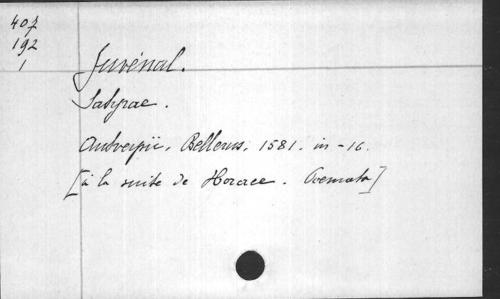 407
192
1
Juvénal.
Satyrae.
Antverpii, Bellerus, 1581. in-16.
[à la suite de Horace. Poemata]